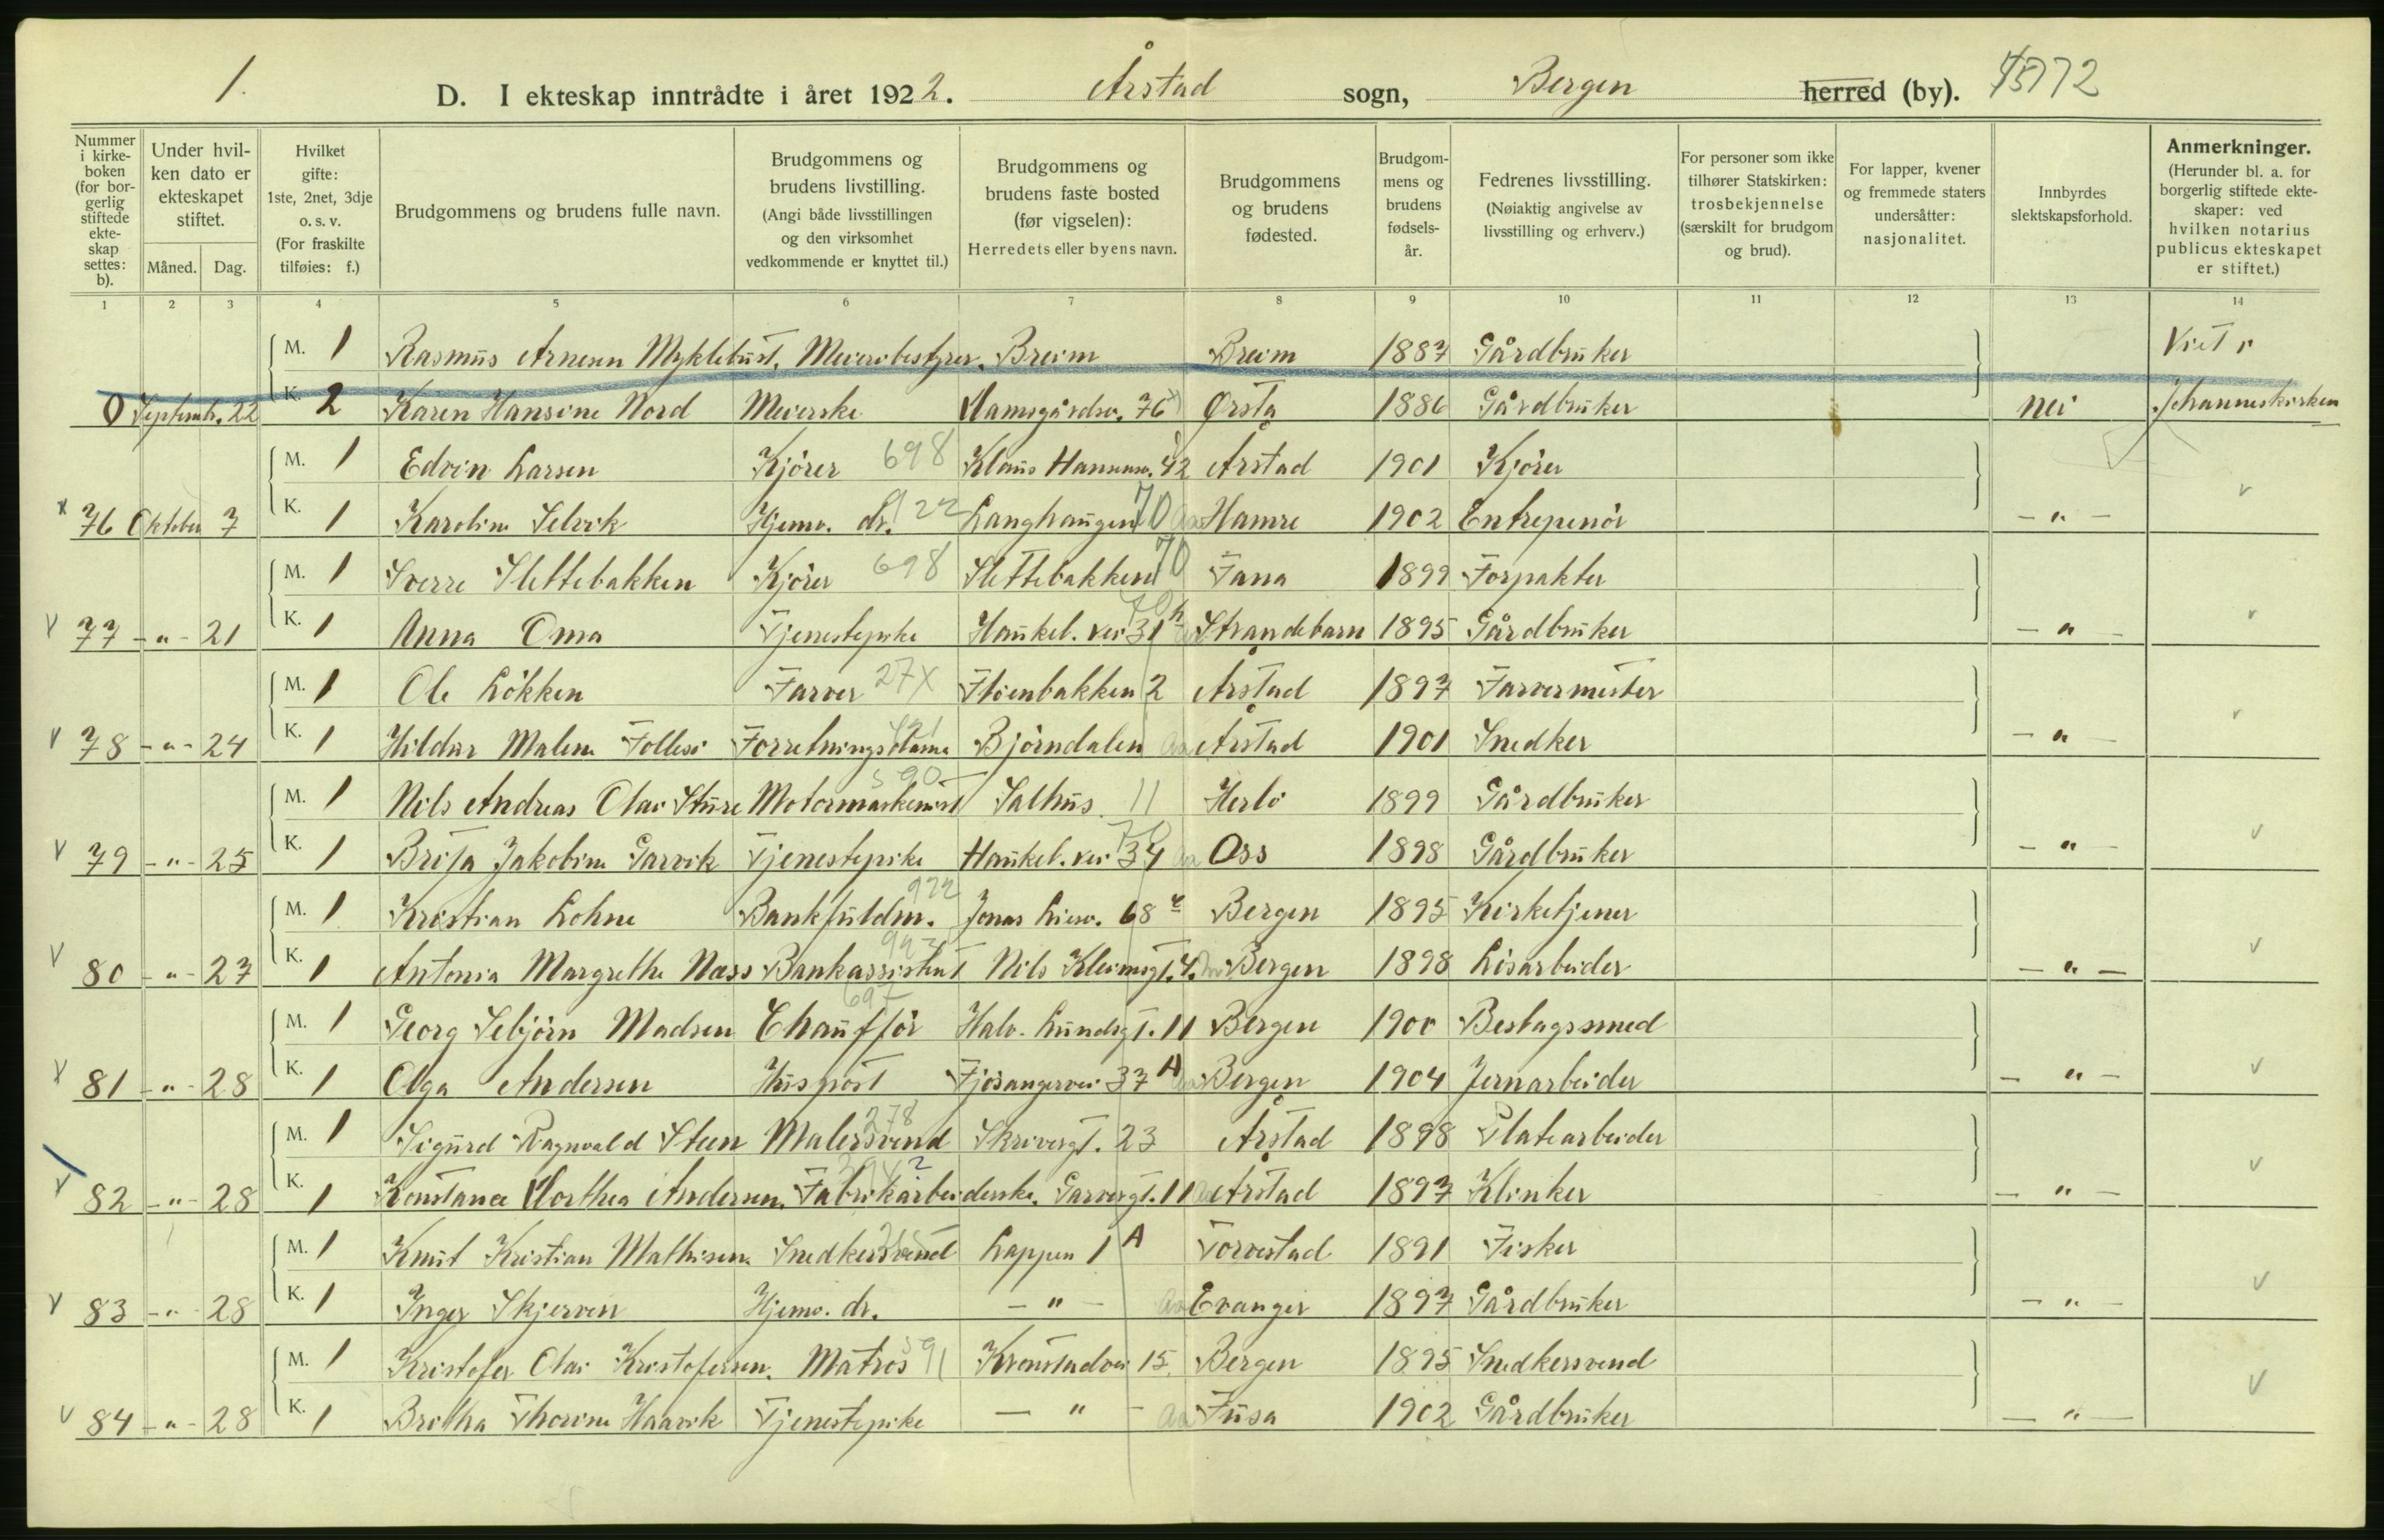 1.
D. I ekteskap inntrådte i året 1922. Årstad sogn, Bergen herred (by).
Nummer i kirkeboken (for borgerlig stiftede ekteskap settes: b).
Under hvilken dato er ekteskapet stiftet.
Måned. Dag.
Hvilket gifte: 1ste, 2net, 3dje o. s. v. (For fraskilte tilføies: f.)
Brudgommens og brudens fulle navn.
Brudgommens og brudens livstilling. (Angi både livsstillingen og den virksomhet vedkommende er knyttet til.)
Brudgommens og brudens faste bosted (før vigselen): Herredets eller byens navn.
Brudgommens og brudens fødested.
Brudgommens og brudens fødselsår.
Fedrenes livsstilling. (Nøiaktig angivelse av livsstilling og erhverv.)
For personer som ikke tilhører Statskirken: trosbekjennelse (særskilt for brudgom og brud).
For lapper, kvener og fremmede staters undersåtter: nasjonalitet.
Innbyrdes slektskapsforhold.
Anmerkninger. (Herunder bl. a. for borgerlig stiftede ekteskaper: ved hvilken notarius publicus ekteskapet er stiftet.)
1 2 3 4 5 6 7 8 9 10 11 12 13 14
M. 1 Rasmus Arnesen Myklebust, Meieribestyrer, Breim Breim 1887 Gårdbruker Viet i
0 Septemb. 22 K. 2 Karen Hansine Nord Meierske Damsgårdsv. 76 Ørsta 1886 Gårdbruker nei Johanneskirken
M. 1 Edvin Larsen Kjører 698 Klaus Hanssenv. 42 Årstad 1901 Kjører
76 Oktober 7 K. 1 Karoline Selvik Hjemv. dr. 922 Langhaugen 70 Hamre 1902 Entrepenör - " -
M. 1 Sverre Slettebakken Kjører 698 Slettebakken 70 Fana 1899 Forpakter
77 - " - 21 K. 1 Anna Oma Tjenestepike Haukel. vei 31 Strandebarm 1895 Gårdbruker - " -
M. 1 Ole Løkken Farver 27X Fløenbakken 2 Årstad 1897 Farvermester
78 - " - 24 K. 1 Hildur Malene Follesø Forretningsdame Bjørndalen Årstad 1901 Snedker - " -
M. 1 Nils Andreas Olai Sture Motormaskinist Salhus 11 Herlø 1899 Gårdbruker
79 - " - 25 K. 1 Brita Jakobine Garvik Tjenestepike Haukel. vei 34 Oss 1898 Gårdbruker - " -
M. 1 Kristian Lohne Bankfuldm. 922 Jonas Liesv. 68 Bergen 1895 Kirketjener
80 - " - 27 K. 1 Antonia Margrethe Næss Bankassistent Nils Kleimsgt. 4 Bergen 1898 Løsarbeider - " -
M. 1 Georg Sebjørn Madsen Chauffør Halv. Lundsgt. 11 Bergen 1900 Beslagssmed
81 - " - 28 K. 1 Olga Andersen Huspost Fjøsangervei 37 A Bergen 1904 Jernarbeider - " -
M. 1 Sigurd Ragnvald Steen Malersvend 278 Skivergt. 23 Årstad 1898 Platearbeider
82 - " - 28 K. 1 Konstance Dorthea Andersen, Fabrikarbeiderske. Garvergt. 11 Årstad 1897 Klinker - " -
M. 1 Knut Kristian Mathisen Snedkersvend Lappen 1 A Torvestad 1891 Fisker
83 - " - 28 K. 1 Inger Skjerven Hjemv. dr. - " - Evanger 1897 Gårdbruker - " -
M. 1 Kristofer Olai Kristofersen. Matros 591 Kronstadvei 15. Bergen 1895 Snedkersvend
84 - " - 28 K. 1 Britha Thorine Haavik Tjenestepike - " - Fusa 1902 Gårdbruker - " -